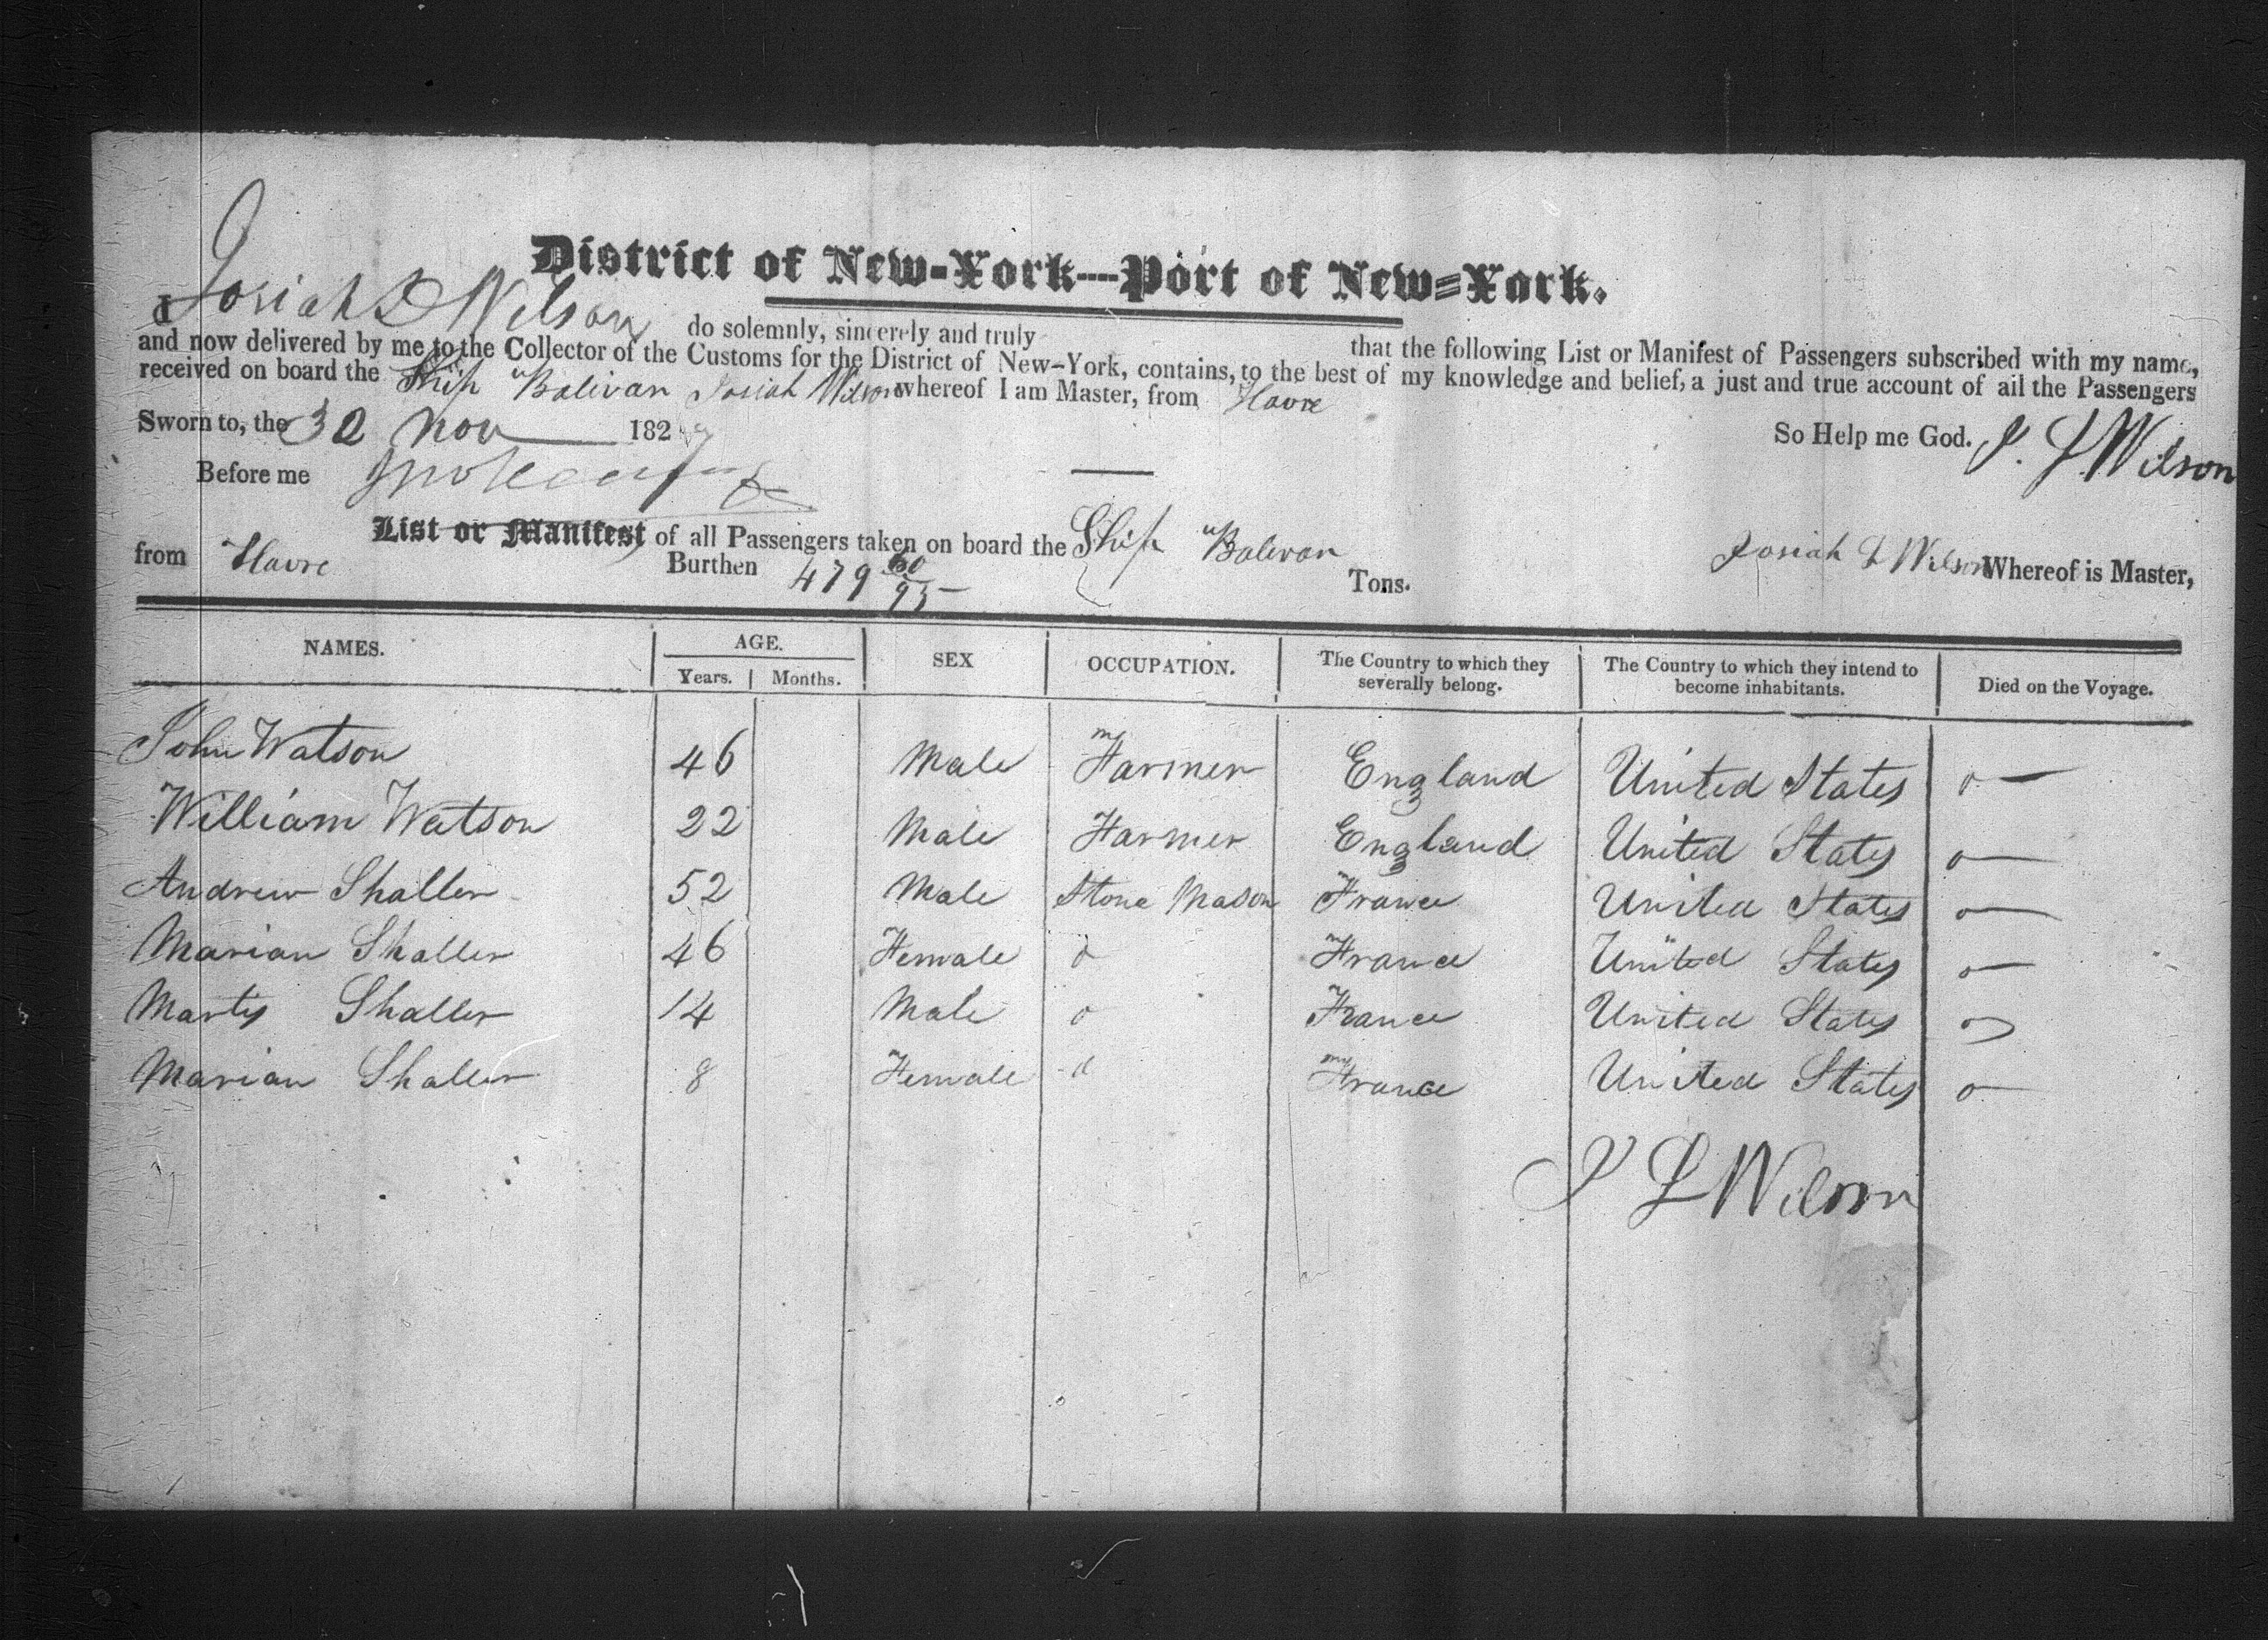 District of New-York---Port of New-York.
I Josiah L Wilson do solemnly, sincerely and truly that the following List or Manifest of Passengers subscribed with my name,
and now delivered by me to the Collector of the Customs for the District of New-York, contains, to the best of my knowledge and belief, a just and true account of all the Passengers
received on board the Ship Bolivar Josiah Wilson whereof I am Master, from Havre
Sworn to, the 30 Nov 182 So Help me God. J. L Wilson
Before me
List or Manifest of all Passengers taken on board the Ship Bolivar Josiah L Wilson Whereof is Master,
from Havre Burthen 479 60/95 Tons.
NAMES. AGE. SEX OCCUPATION. The Country to which they severally belong. The Country to which they intend to become inhabitants. Died on the Voyage.
Years. Months.
John Watson 46 Male Farmer England United States o
William Watson 22 Male Farmer England United States o
Andrew Shaller 52 Male Stone Mason France United States o
Marian Shaller 46 Female o France United States o
Marty Shaller 14 Male o France United States o
Marian Shaller 8 Female France United States o
J L Wilson